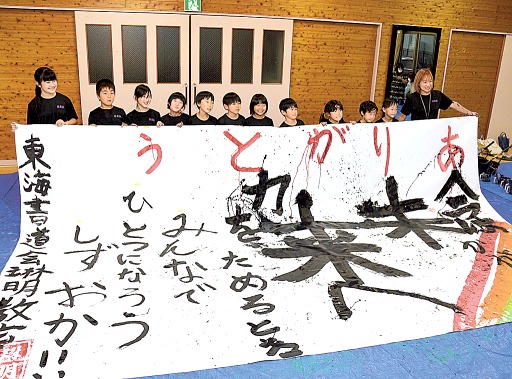 ありがとう
今こそ
未来へ
力を
ためるとき
みんなで
ひとつになろう
しずおか!!
東海書道会琳明教室